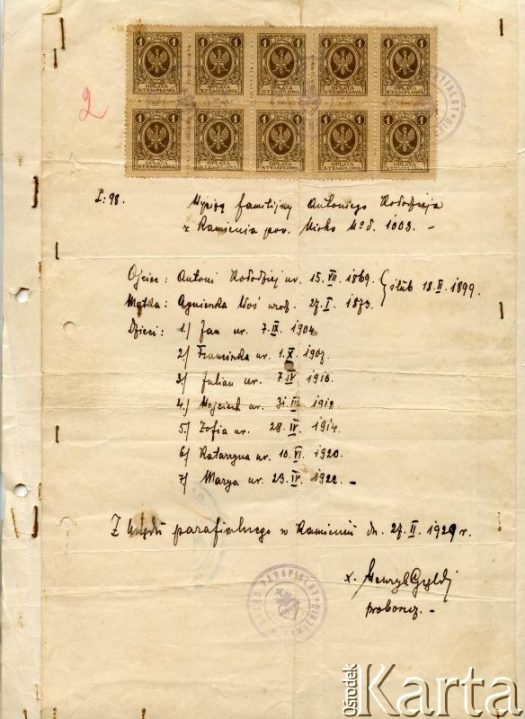 1 1 1 1 1
OPŁATA STEMPLOWA OPŁATA STEMPLOWA OPŁATA STEMPLOWA OPŁATA STEMPLOWA OPŁATA STEMPLOWA
1 1 1 1 1
OPŁATA STEMPLOWA OPŁATA STEMPLOWA OPŁATA STEMPLOWA OPŁATA STEMPLOWA OPŁATA STEMPLOWA
2
L: 98. Wyciąg familijny Antoniego Kołodzieja
z Kamienia pow. Nisko No d. 1003. –
Ojciec: Antoni Kołodziej ur. 15. 1869. ślub 18.II.1899.
Matka: Agnieszka Woś urodz. 27. I. 1873.
Dzieci: 1/ Jan ur. 7. IX. 1904.
2/ Franciszka ur. 1. X. 1907.
3/ Julian ur. 7 IV 1910.
4/ Wojciech ur. 31. 1912
5/ Zofia ur. 28. IV. 1914.
6/ Katarzyna ur. 10. VI. 1920.
7/ Marya ur. 23. IV. 1922. –
Z Urzędu parafialnego w Kamieniu dn. 27. II. 1929 r.
x. Henryk
proboszcz. –
URZĄD PARAFIALNY
ośrodek Karta